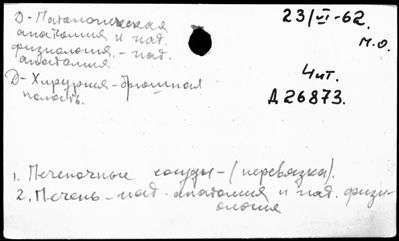 Д-Патологическая
анатомия и пат.
физиология. - пат.
анатомия
Д-Хирургия-брюшная
полость.
23/VI-62.
М.О.
4 чит.
Д 26873.
1. Печеночные сосуды-(перевязка).
2. Печень-пат. анатомия и пат. физи-
ология